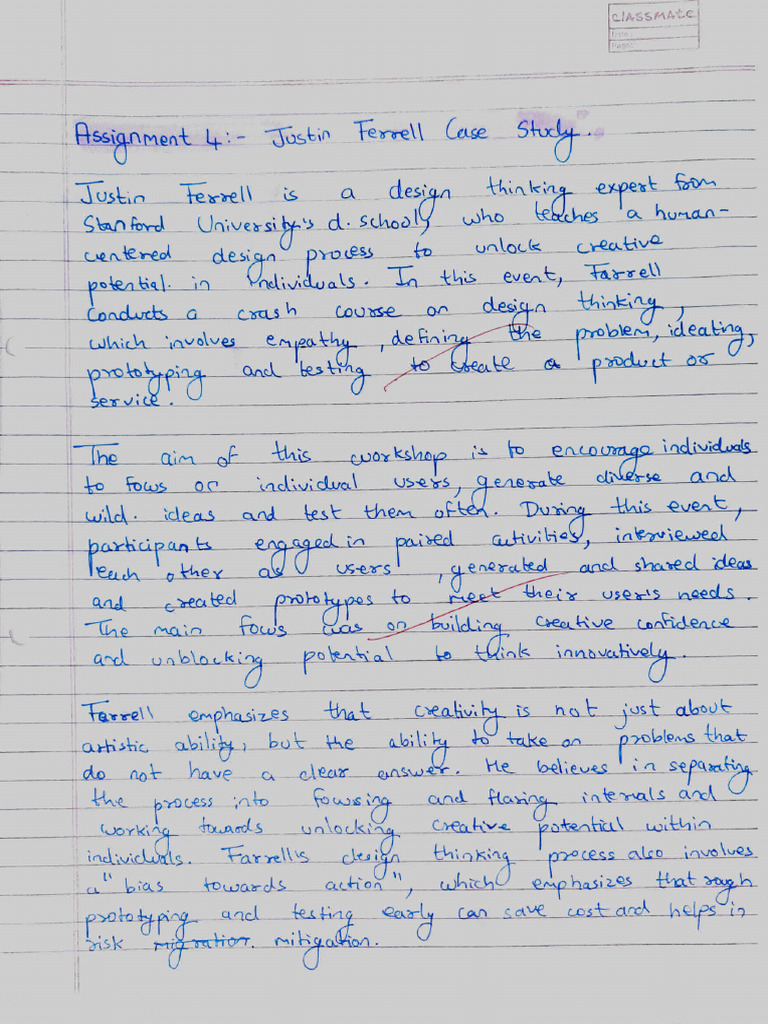 CLASSMATE
Date:
Page:
Assignment 4:- Justin Ferrell Case Study.
Justin Ferrell is a design thinking expert from
Stanford University's d. school, who teaches a human-
centered design process to unlock creative
potential. in individuals. In this event, Farrell
conducts a crash course on design thinking,
which involves empathy, defining the problem, ideating,
prototyping and testing to create a product or
service.
The aim of this workshop is to encourage individuals
to focus on individual users, generate diverse and
wild. ideas and test them often. During this event,
participants engaged in paired activities, interviewed
each other as users, generated and shared ideas
and created prototypes to meet their user's needs.
The main focus was on building creative confidence
and unblocking potential to think innovatively.
Farrell emphasizes that creativity is not just about
artistic ability, but the ability to take on problems that
do not have a clear answer. He believes in separating
the process into focusing and flaring intervals and
working towards unlocking creative potential within
individuals. Farrell's design thinking process also involves
a "bias towards action", which emphasizes that rough
prototyping and testing early can save cost and helps in
risk migration. mitigation.